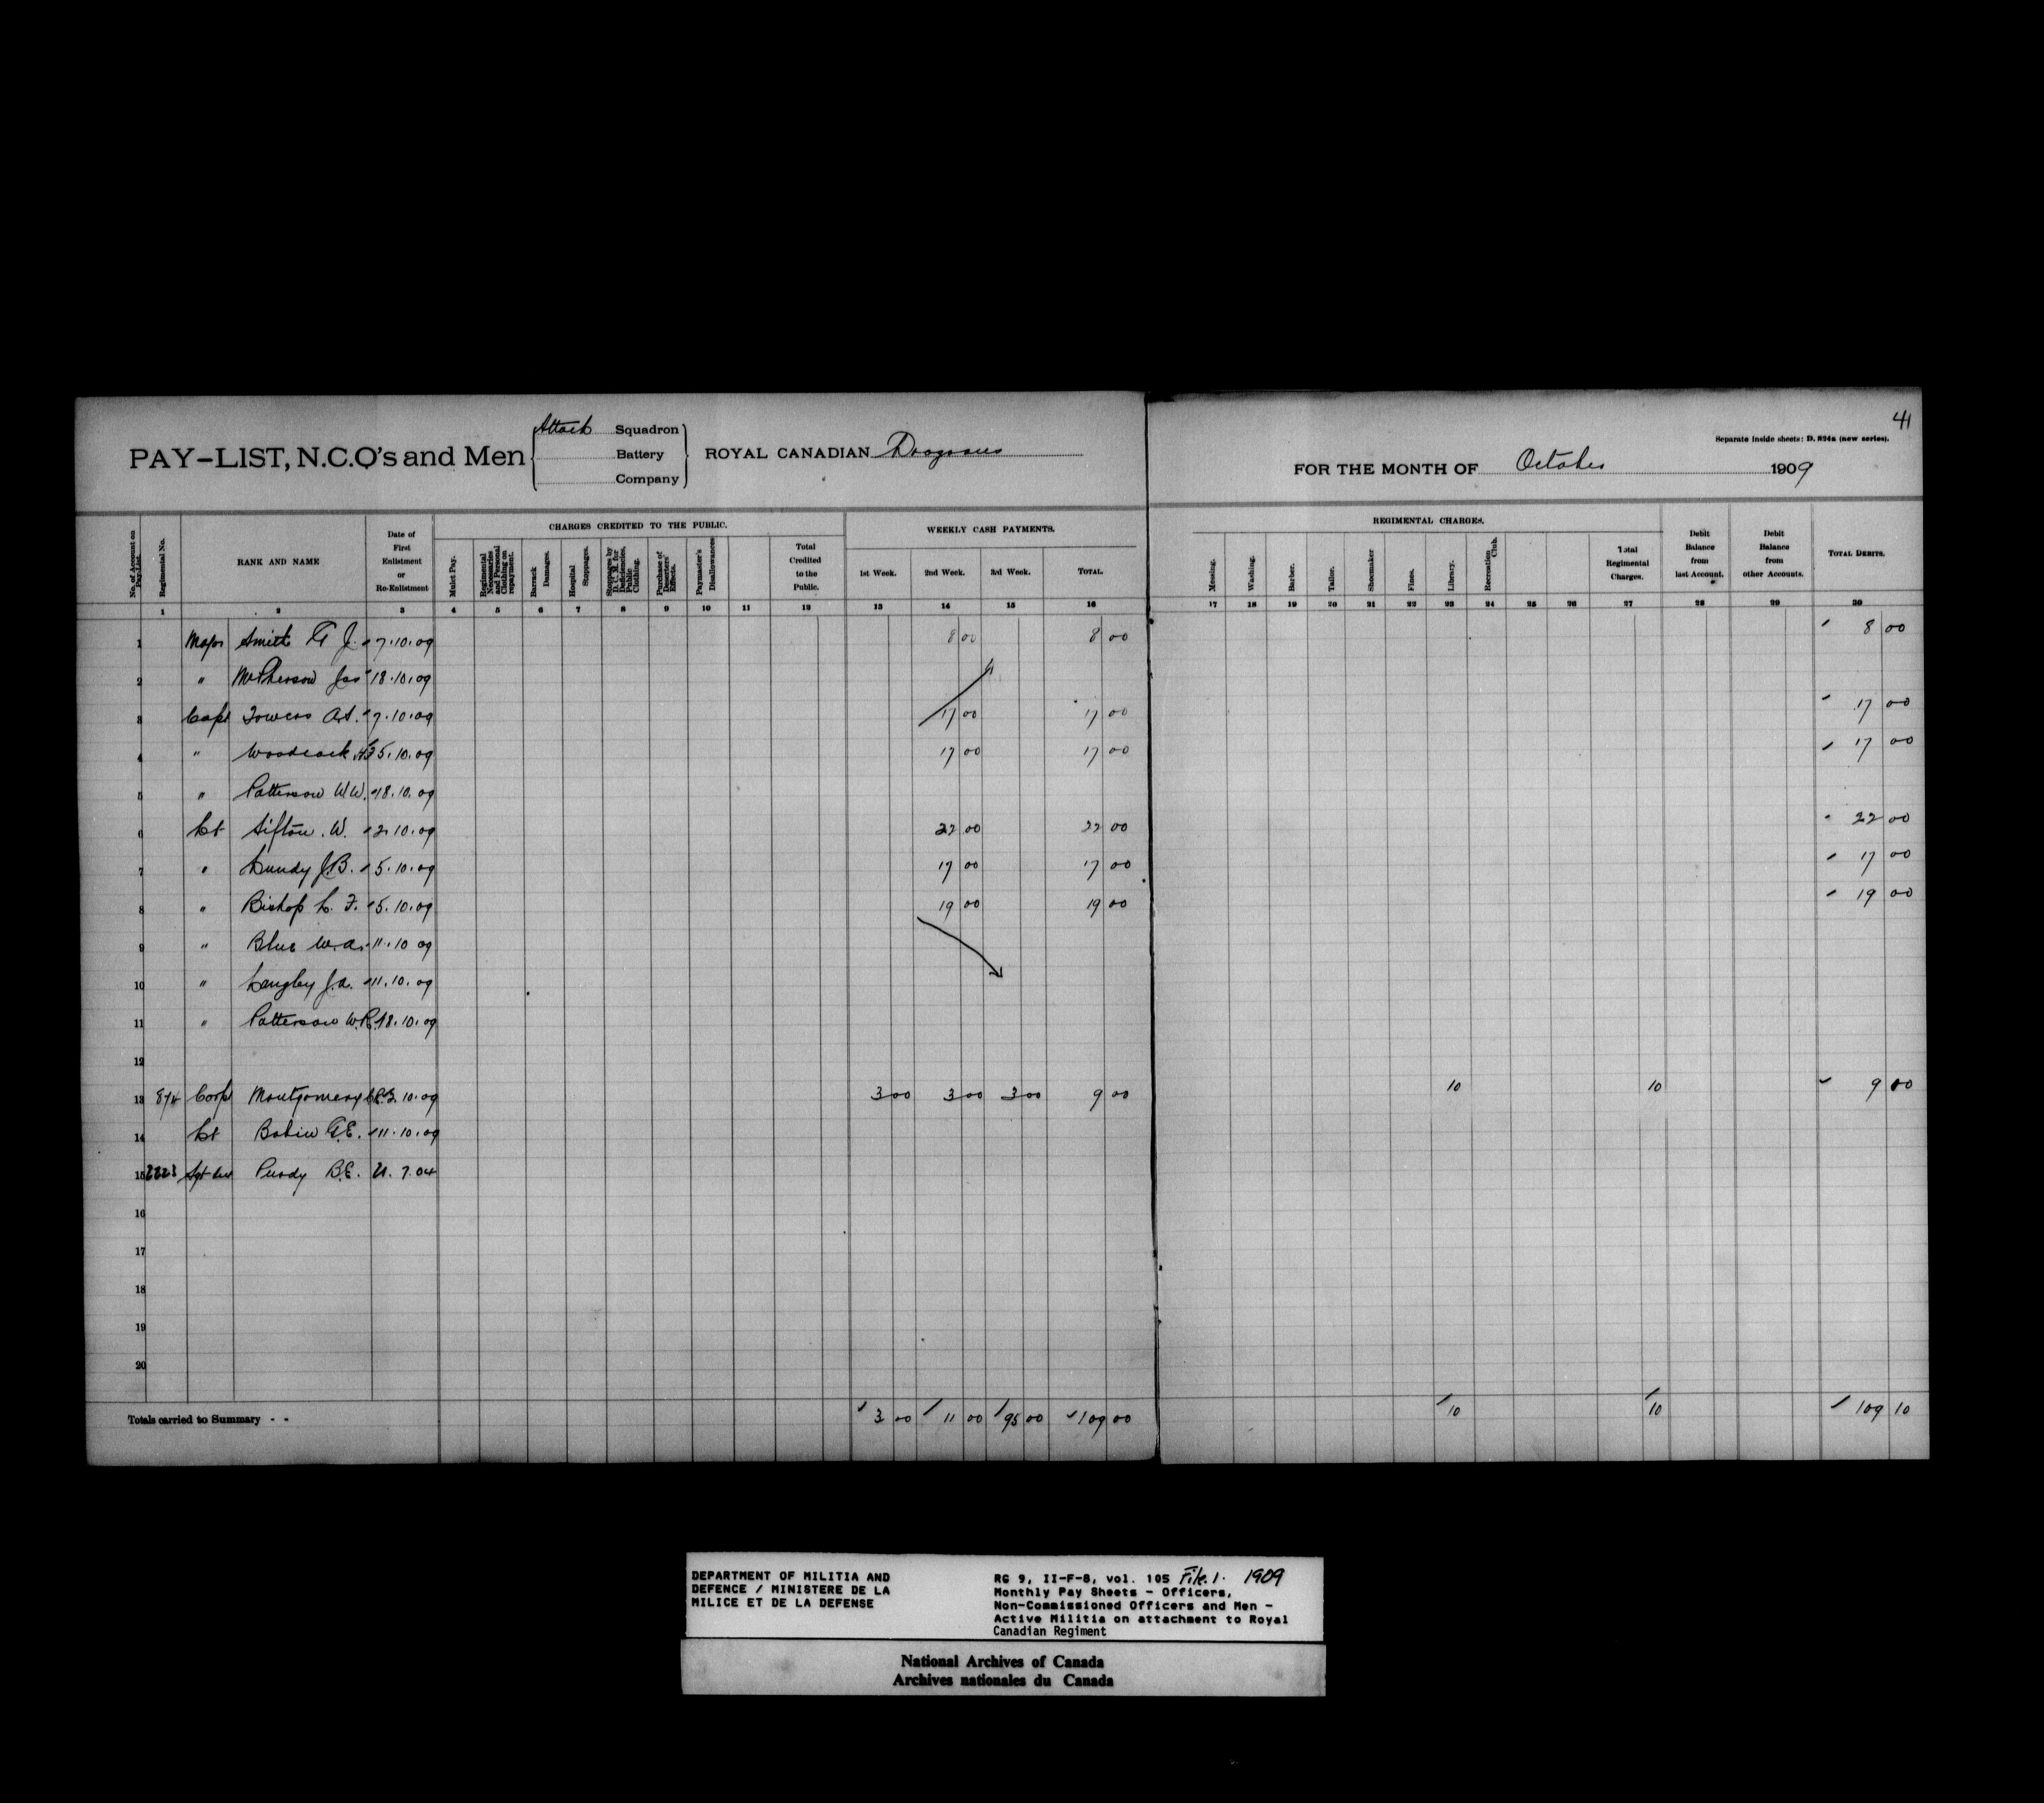 41
Separate inside sheets: D. 824a (new series).
PAY-LIST, N.C.O's and Men
Attach Squadron
Battery
Company
ROYAL CANADIAN Dragoons
FOR THE MONTH OF October 1909
CHARGES CREDITED TO THE PUBLIC.
WEEKLY CASH PAYMENTS.
REGIMENTAL CHARGES.
No. of Account on Pay-List.
Regimental No.
RANK AND NAME
Date of First Enlistment or Re-Enlistment
Mulct Pay.
Regimental Necessaries and Personal Clothing on repayment.
Barrack Damages.
Hospital Stoppages.
Stoppages by D.C.M. for Deficiencies, Public Clothing.
Purchase of Deserters' Effects.
Paymaster's Disallowances
Total Credited to the Public.
1st Week.
2nd Week.
3rd Week.
TOTAL.
Messing.
Washing.
Barber.
Tailor.
Shoemaker
Fines.
Library.
Recreation Club.
Total Regimental Charges.
Debit Balance from last Account.
Debit Balance from other Accounts.
TOTAL DEBITS.
1 2 3 4 5 6 7 8 9 10 11 12 13 14 15 16 17 18 19 20 21 22 23 24 25 26 27 28 29 30
1 Major Smith G J. 7.10.09 8 00 8 00 8 00
2 " McPherson Jas 18.10.09
3 Capt Towers A.S. 7.10.09 17 00 17 00 17 00
4 " Woodcock 5.10.09 17 00 17 00 17 00
5 " Patterson W.W. 18.10.09
6 Lt Sifton. W. 2.10.09 22 00 22 00 22 00
7 " Lundy J.B. 5.10.09 17 00 17 00 17 00
8 " Bishop L. F. 5.10.09 19 00 19 00 19 00
9 " Blue W.A. 11.10 09
10 " Langley J.A. 11.10.09
11 " Patterson W.R. 18.10.09
12
13 874 Corpl Montgomery 10.09 3 00 3 00 3 00 9 00 10 10 9 00
14 Lt G.E. 11.10.09
15 2223 Sgt Purdy B.E. 21.7.04
16
17
18
19
20
Totals carried to Summary - - 3 00 11 00 95 00 109 00 10 10 109 10
DEPARTMENT OF MILITIA AND
DEFENCE / MINISTERE DE LA
MILICE ET DE LA DEFENSE
RG 9, II-F-8, vol. 105 File. 1. 1909
Monthly Pay Sheets - Officers,
Non-Commissioned Officers and Men -
Active Militia on attachment to Royal
Canadian Regiment
National Archives of Canada
Archives nationales du Canada